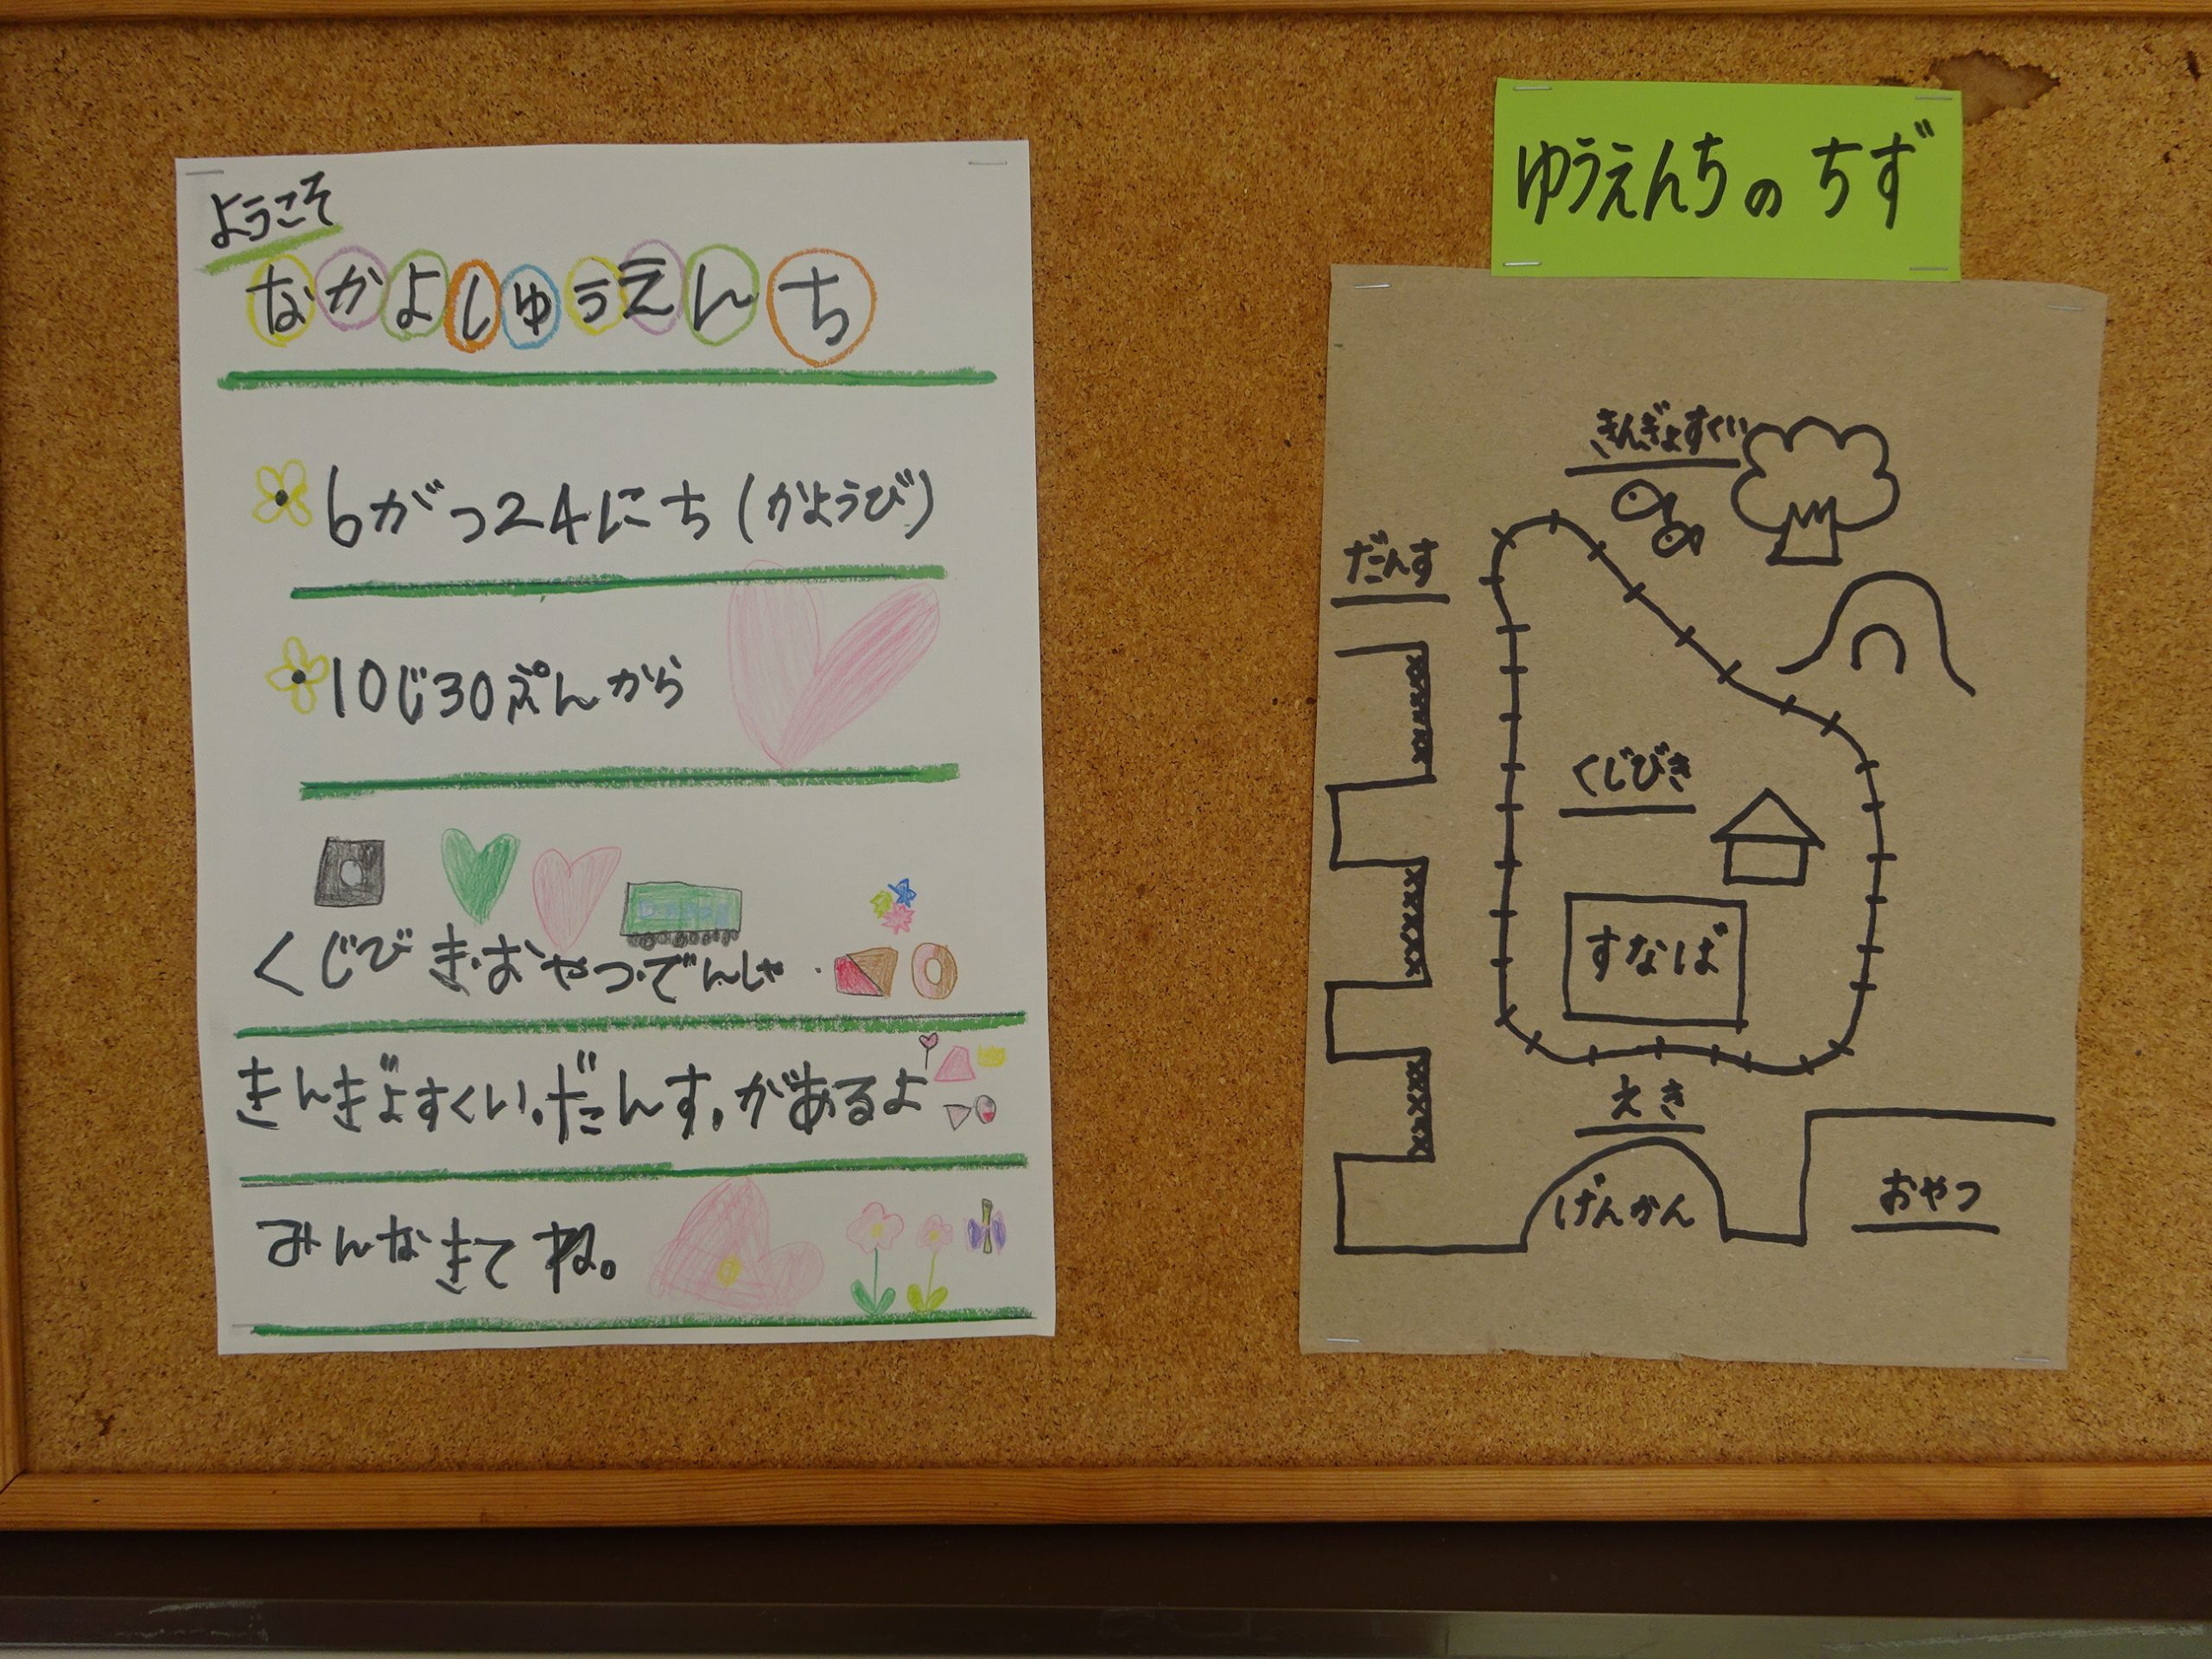 ようこそ
なかよしゆうえんち
6がつ24にち(かようび)
10じ30ぷんから
くじびき・おやつ・でんしゃ・
きんぎょすくい・だんす・があるよ
みんなきてね。
ゆうえんちの ちず
きんぎょすくい
だんす
くじびき
すなば
えき
げんかん
おやつ